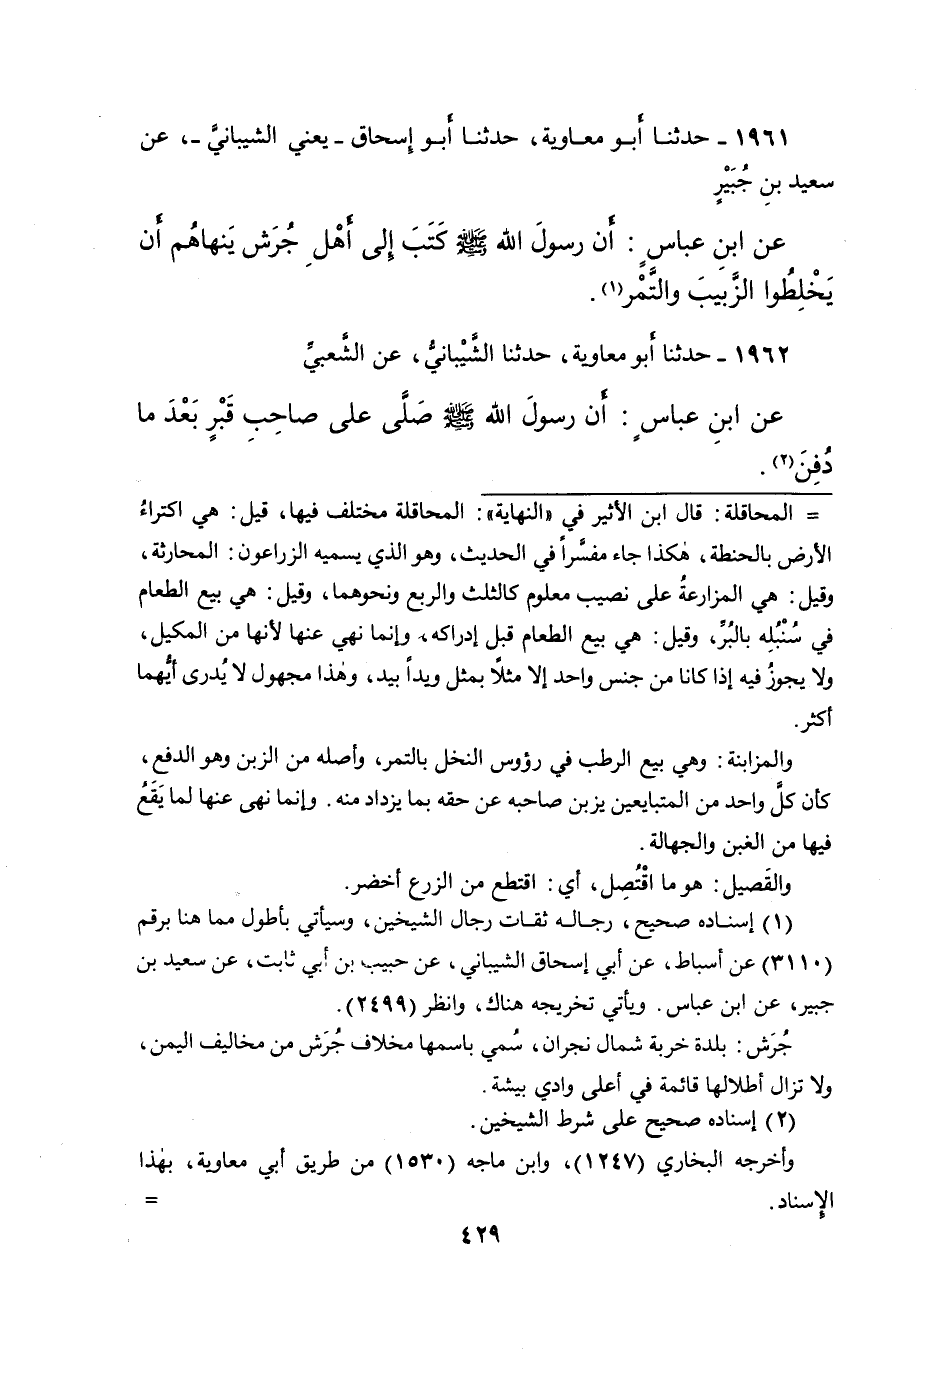 ١٩٦١ - حدثنـا أَبـو معـاوية، حدثنـا أَبـو إسحاق - يعني الشيبانيَّ -، عن
سعيد بنِ جُبَيْرٍ
عن ابنِ عباسٍ: أَن رسولَ الله ﷺ كَتَبَ إِلى أَهْلِ جُرَش يَنهاهُم أَن
يَخْلِطُوا الزَّبِيبَ والتَّمْر(١).
١٩٦٢ - حدثنا أَبو معاوية، حدثنا الشَّيْبانيُّ، عن الشَّعبيِّ
عن ابنِ عباسٍ: أَن رسولَ الله ﷺ صَلَّى على صاحِبِ قَبْرٍ بَعْدَ ما
دُفِنَ(٢).
= المحاقلة: قال ابن الأثير في «النهاية»: المحاقلة مختلف فيها، قيل: هي اكتراءُ
الأرض بالحنطة، هٰكذا جاء مفسَّراً في الحديث، وهو الذي يسميه الزراعون: المحارثة،
وقيل: هي المزارعةُ على نصيب معلوم كالثلث والربع ونحوهما، وقيل: هي بيع الطعام
في سُنْبُلِه بالبُرِّ، وقيل: هي بيع الطعام قبل إدراكه، وإنما نهي عنها لأنها من المكيل،
ولا يجوزُ فيه إذا كانا من جنس واحد إلا مثلًا بمثل ويداً بيد، وهٰذا مجهول لا يُدرى أيُّهما
أكثر.
والمزابنة: وهي بيع الرطب في رؤوس النخل بالتمر، وأصله من الزبن وهو الدفع،
كأن كلَّ واحد من المتبايعين يزبن صاحبه عن حقه بما يزداد منه. وإنما نهى عنها لما يَقَعُ
فيها من الغبن والجهالة.
والقَصيل: هو ما اقْتُصِل، أي: اقتطع من الزرع أخضر.
(١) إسنـاده صحيح، رجـالـه ثقـات رجال الشيخين، وسيأتي بأطول مما هنا برقم
(٣١١٠) عن أسباط، عن أبي إسحاق الشيباني، عن حبيب بن أبي ثابت، عن سعيد بن
جبير، عن ابن عباس. ويأتي تخريجه هناك، وانظر (٢٤٩٩).
جُرَش: بلدة خربة شمال نجران، سُمي باسمها مخلاف جُرَش من مخاليف اليمن،
ولا تزال أطلالها قائمة في أعلى وادي بيشة.
(٢) إسناده صحيح على شرط الشيخين.
وأخرجه البخاري (١٢٤٧)، وابن ماجه (١٥٣٠) من طريق أبي معاوية، بهٰذا
الإِسناد. =
٤٢٩